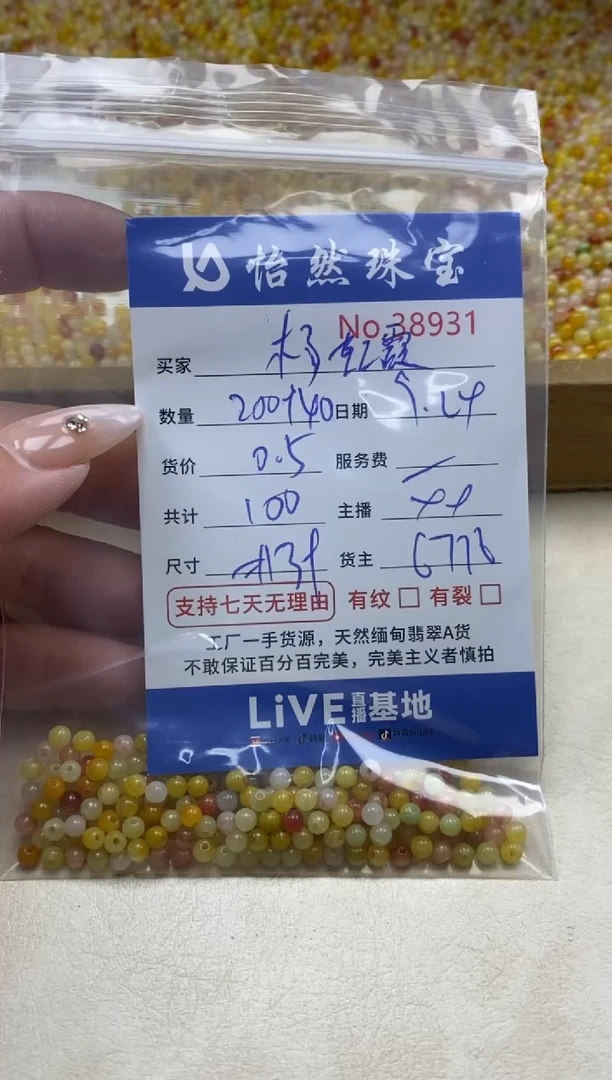 怡然珠宝
No.38931
买家 杨红霞
数量 200+40 日期 5.24
货价 0.5 服务费
共计 100 主播
尺寸 货主 6776
支持七天无理由 有纹 有裂
工厂一手货源，天然缅甸翡翠A货
不敢保证百分百完美，完美主义者慎拍
LiVE直播基地